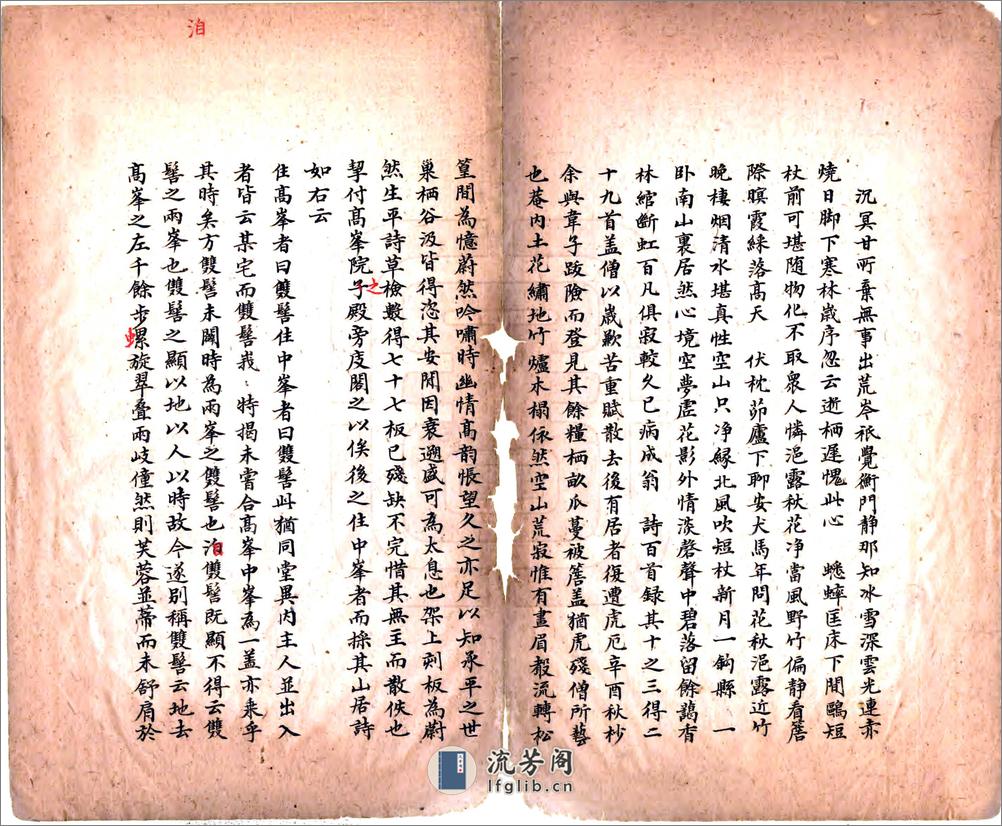 沉冥甘所棄無事出荒岑祇覺衡門静那知冰雪深雲光連赤
燒日脚下寒林歲序忽云逝栖遲愧此心　蟋蟀匡床下間鷗短
杖前可堪随物化不取衆人憐浥露秋花净當風野竹偏静看簷
際暝霞綵落高天　伏枕茆廬下聊安犬馬年問花秋浥露近竹
晚棲烟清水堪真性空山只净緣北風吹短杖新月一鈎縣　一
卧南山裏居然心境空夢虛花影外情淡磬聲中碧落留餘藹杳
林綰斷虹百凡俱寂較久已病成翁　詩百首録其十之三得二
十九首盖僧以歲歉苦重賦散去後有居者復遭虎厄辛酉秋杪
余與韋子跋險而登見其餘糧栖畝瓜蔓被簷盖猶虎殘僧所藝
也菴内土花繡地竹爐木榻依然空山荒寂惟有畫眉數流轉松
篁間為憶蔚然吟嘯時幽情高韵悵望久之亦足以知承平之世
巢栖谷汲皆得恣其安閒因衰遡盛可為太息也架上刻板為蔚
然生平詩草檢數得七十七板已殘缺不完惜其無主而散佚也
挈付高峯院予之殿旁庋閣之以俟後之住中峯者而採其山居詩
如右云
住高峯者曰雙髻住中峯者曰雙髻此猶同堂異内主人並出入
者皆云某宅而雙髻峩峩特揭未嘗合高峯中峯為一盖亦乘乎
其時矣方雙髻未闢時為兩峯之雙髻也洎雙髻既顯不得云雙
髻之兩峯也雙髻之顯以地以人以時故今遂别稱雙髻云地去
高峯之左千餘步螺旋翠叠兩岐僮然則芙蓉並蒂而未舒肩於
洎
流芳阁
lfglib.cn